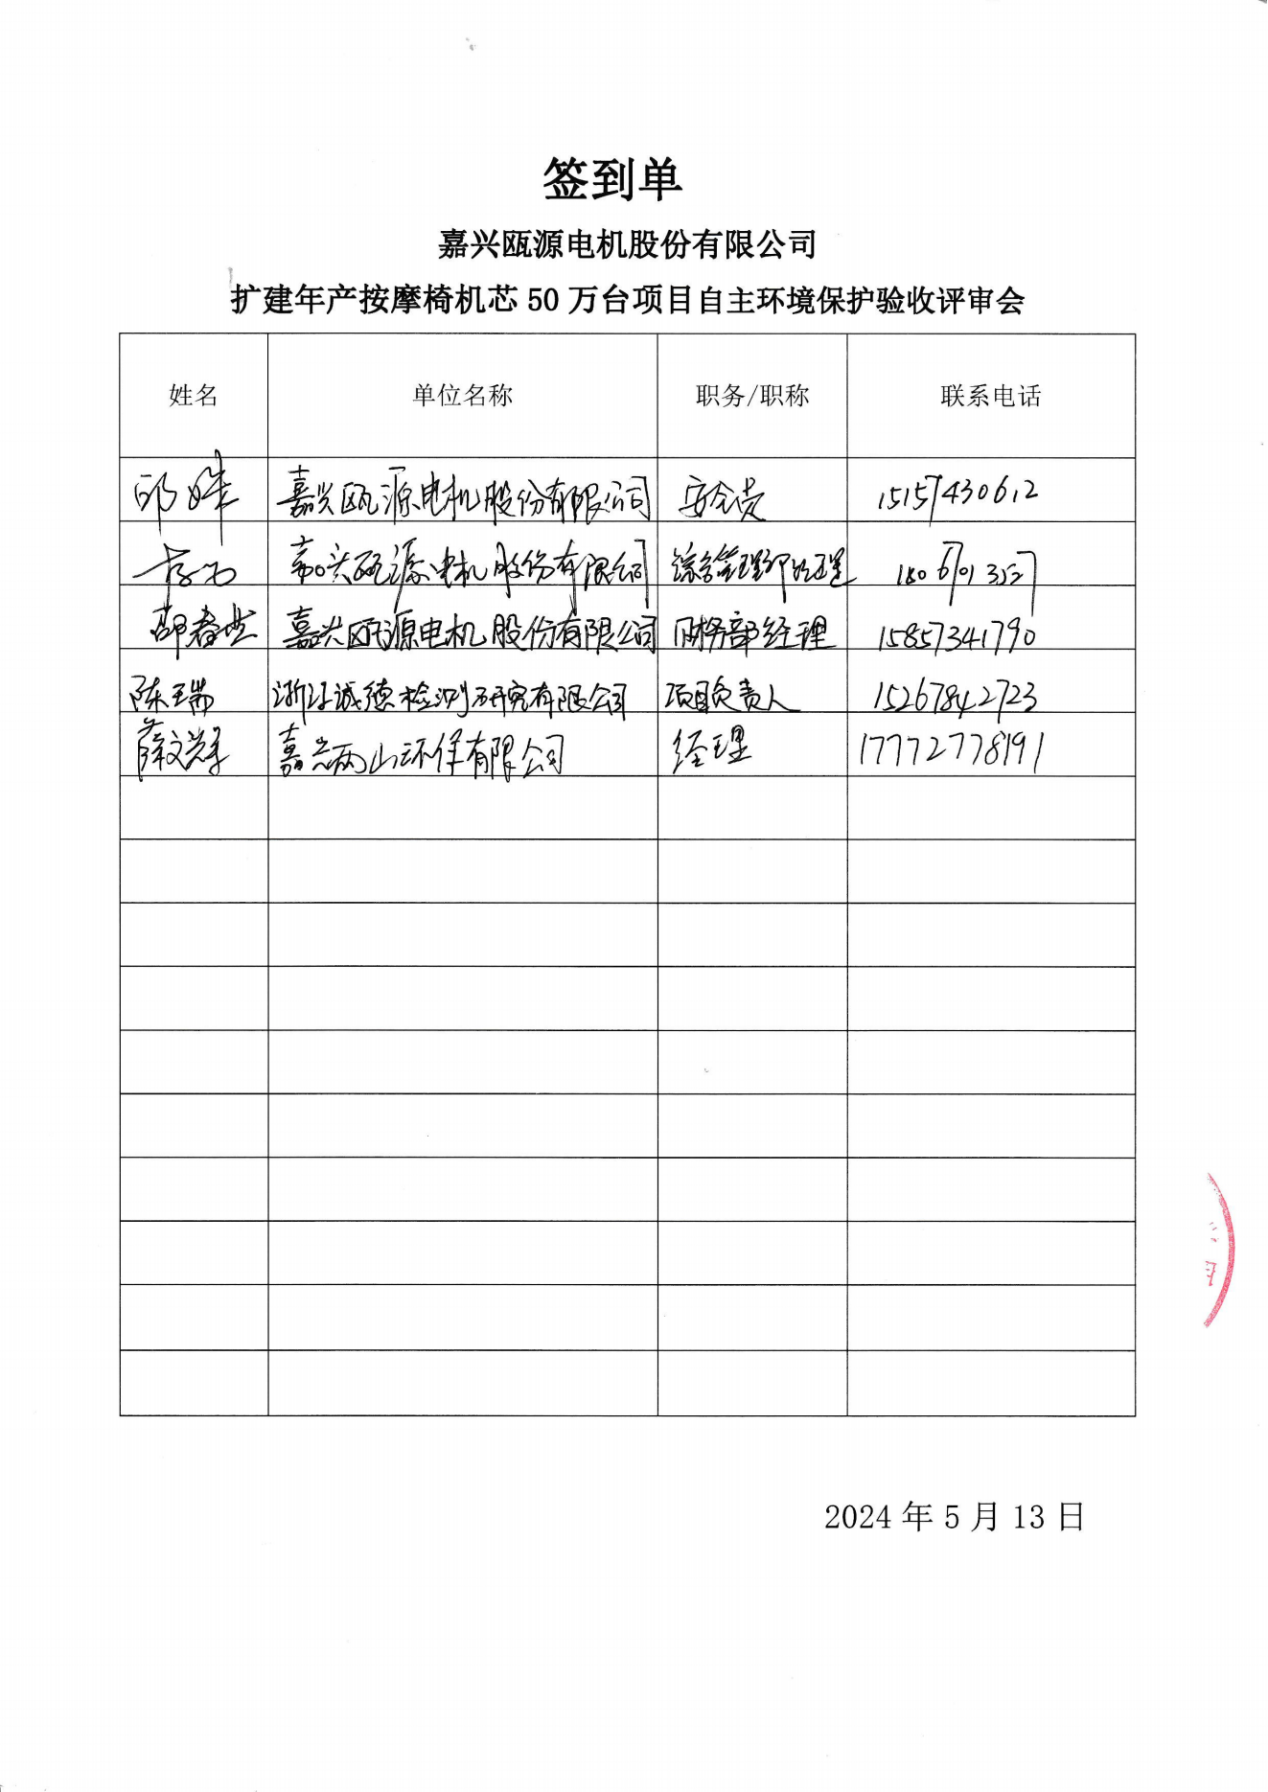 签到单
嘉兴瓯源电机股份有限公司
扩建年产按摩椅机芯 50 万台项目自主环境保护验收评审会
姓名 单位名称 职务/职称 联系电话
邱 嘉兴瓯源电机股份有限公司 安全员 15157430612
嘉兴瓯源电机股份有限公司 综合管理部经理
邵春 嘉兴瓯源电机股份有限公司 财务部经理 15857341790
陈瑞 浙江诚德检测研究有限公司 项目负责人 15267842723
薛文 嘉兴两山环保有限公司 经理 17772778191
2024 年 5 月 13 日